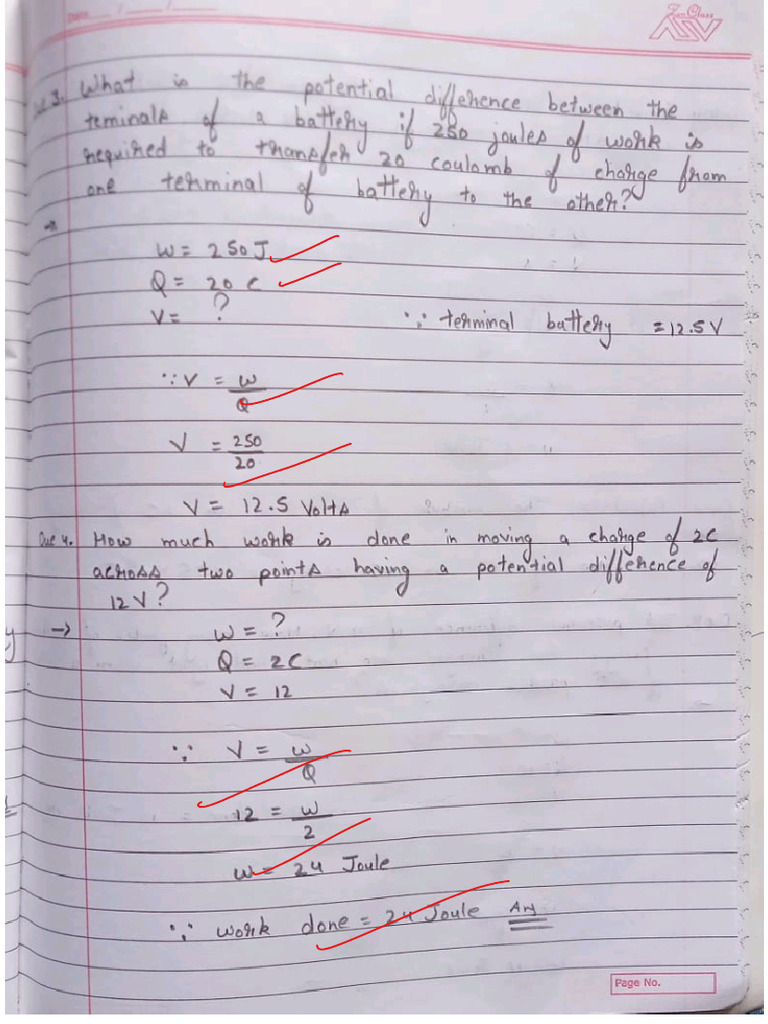 Date
Que 3. What is the potential difference between the
teminals of a battery if 250 joules of work is
required to transfer 20 coulomb of charge from
one terminal of battery to the other?
→
W = 250 J
Q = 20 C
V = ?
∵ terminal buttery = 12.5 V
∵ V = W
Q
V = 250
20
V = 12.5 Volts
Que 4. How much work is done in moving a charge of 2C
across two points having a potential difference of
12 V?
→ W = ?
Q = 2C
V = 12
∵ V = W
Q
12 = W
2
W = 24 Joule
∵ work done = 24 Joule Ans
Page No.